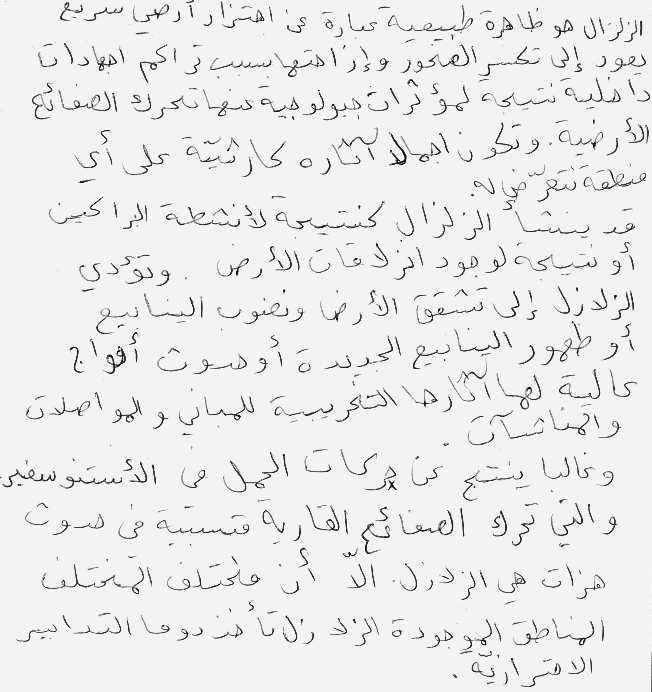 الزلزال هو ظاهرة طبيعية عبارة عن اهتزاز أرضي سريع
يعود إلى تكسر الصخور وإزاحتها بسبب تراكم اجهادات
داخلية نتيجة لمؤثرات جيولوجية ينجم عنها تحرك الصفائح
الأرضية. وتكون اجمالا آثاره كارثيّة على أي
منطقة تتعرّض له.
قد ينشأ الزلزال كنتيجة لأنشطة البراكين
أو نتيجة لوجود انزلاقات الأرض. وتؤدي
الزلازل إلى تشقق الأرض ونضوب الينابيع
أو ظهور الينابيع الجديدة أو حدوث أمواج
عالية لها آثارها التخريبية للمباني والمواصلات
والمنشآت.
وغالبا ينتج عن حركات الحمل في الأستنوسفير
والتي تحرك الصفائح القارية متسببة في حدوث
هزات هي الزلازل. الاّ أن مختلف
المناطق الموجودة الزلازل تأخذ دوما التدابير
الاحترازيّة.